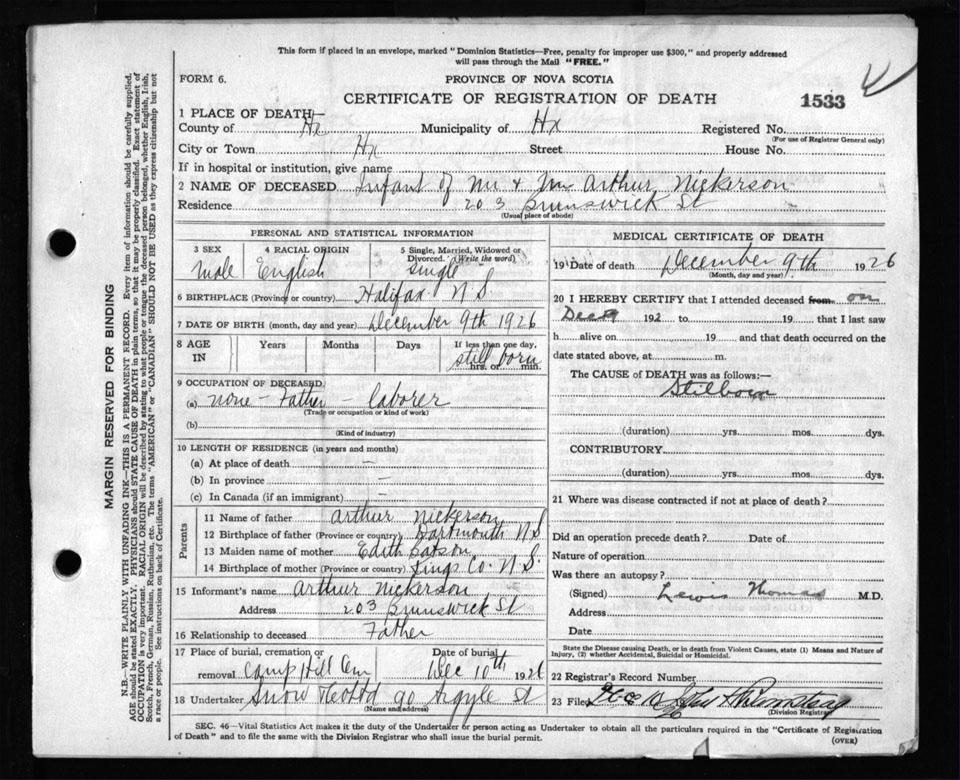 This form if placed in an envelope, marked "Dominion Statistics—Free, penalty for improper use $300," and properly addressed
will pass through the Mail "FREE."
FORM 6.
PROVINCE OF NOVA SCOTIA
CERTIFICATE OF REGISTRATION OF DEATH
1533
1 PLACE OF DEATH—
County of Hx Municipality of Hx Registered No.
(For use of Registrar General only)
City or Town Hx Street House No.
If in hospital or institution, give name
2 NAME OF DECEASED Infant of Mr + Mrs Arthur Nickerson
Residence 203 Brunswick St
(Usual place of abode)
PERSONAL AND STATISTICAL INFORMATION
3 SEX 4 RACIAL ORIGIN 5 Single, Married, Widowed or
Divorced. (Write the word)
Male English Single
6 BIRTHPLACE (Province or country) Halifax N S.
7 DATE OF BIRTH (month, day and year) December 9th 1926
8 AGE IN Years Months Days If less than one day,
still born
hrs. or min.
9 OCCUPATION OF DECEASED
(a) none - Father - laborer
(Trade or occupation or kind of work)
(b)
(Kind of industry)
10 LENGTH OF RESIDENCE (in years and months)
(a) At place of death —
(b) In province —
(c) In Canada (if an immigrant) —
Parents
11 Name of father Arthur Nickerson
12 Birthplace of father (Province or country) Dartmouth N S
13 Maiden name of mother Edith
14 Birthplace of mother (Province or country) Kings Co. N S.
15 Informant's name Arthur Nickerson
Address 203 Brunswick St
16 Relationship to deceased Father
17 Place of burial, cremation or Date of burial
removal Camp Hill Cem Dec 10th 1926
18 Undertaker Snow 90 Argyle St
(Name and address)
MEDICAL CERTIFICATE OF DEATH
19 Date of death December 9th 1926
(Month, day and year)
20 I HEREBY CERTIFY that I attended deceased from on
192 to 19 that I last saw
h alive on 19 and that death occurred on the
date stated above, at m.
The CAUSE of DEATH was as follows:—
Stillborn
(duration) yrs. mos. dys.
CONTRIBUTORY
(duration) yrs. mos. dys.
21 Where was disease contracted if not at place of death?
Did an operation precede death? Date of
Nature of operation
Was there an autopsy?
(Signed) Lewis Thomas M.D.
Address
Date
State the Disease causing Death, or in death from Violent Causes, state (1) Means and Nature of
Injury, (2) whether Accidental, Suicidal or Homicidal.
22 Registrar's Record Number
23 Filed
(Division Registrar)
SEC. 46—Vital Statistics Act makes it the duty of the Undertaker or person acting as Undertaker to obtain all the particulars required in the "Certificate of Registration
of Death" and to file the same with the Division Registrar who shall issue the burial permit.
(OVER)
MARGIN RESERVED FOR BINDING
N.B.—WRITE PLAINLY WITH UNFADING INK—THIS IS A PERMANENT RECORD. Every item of information should be carefully supplied.
AGE should be stated EXACTLY. PHYSICIANS should STATE CAUSE OF DEATH in plain terms, so that it may be properly classified. Exact statement of
OCCUPATION is very important. RACIAL ORIGIN will be described by stating to what people or tongue the deceased person belonged, whether English, Irish,
Scotch, French, German, Russian, Ruthenian, etc. The terms "AMERICAN" or "CANADIAN" SHOULD NOT BE USED as they express citizenship but not
a race or people. See instructions on back of Certificate.